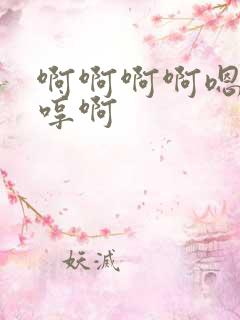 啊啊啊啊嗯
哼啊
妖滅